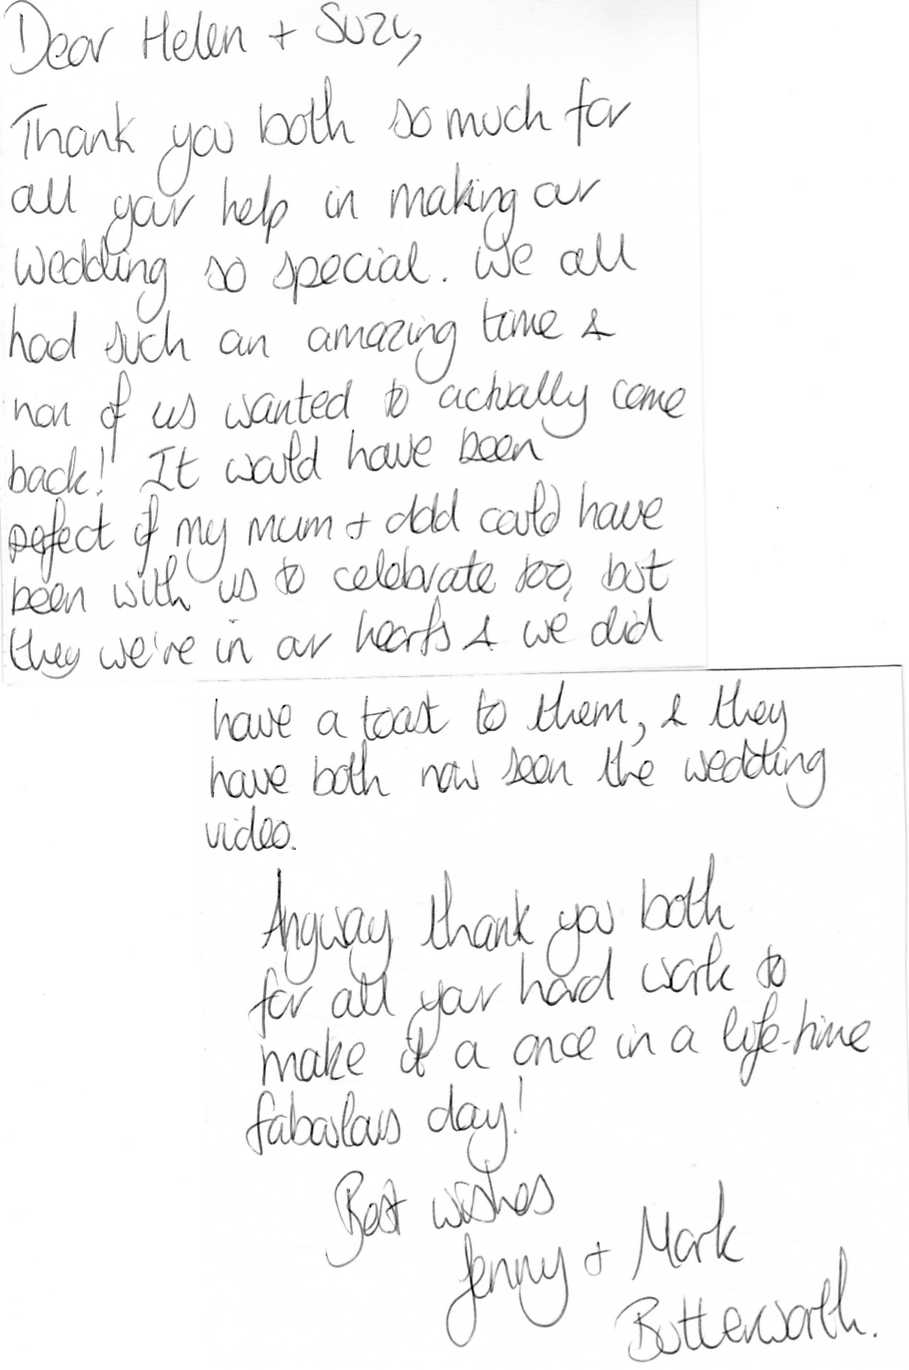 Dear Helen + Suzy,
Thank you both so much for
all your help in making our
wedding so special. We all
had such an amazing time &
non of us wanted to actually come
back! It would have been
perfect if my mum + dad could have
been with us to celebrate too, but
they we're in our hearts & we did
have a toast to them, & they
have both now seen the wedding
video.
Anyway thank you both
for all your hard work to
make it a once in a life-time
faboulous day!
Best wishes
Jenny + Mark
Butterworth.